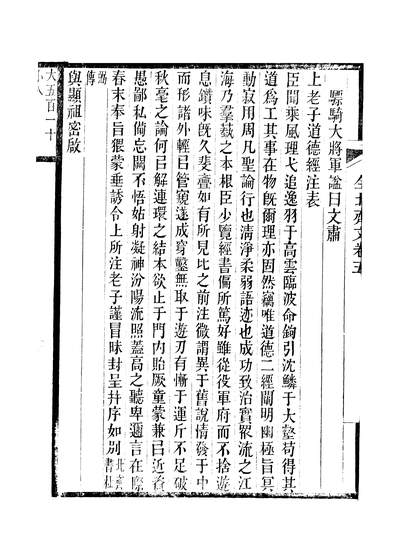 全北齊文卷五
驃騎大將軍謚曰文肅
上老子道德經注表
臣聞乘風理弋追逸羽于高雲臨波命鉤引沈鱗于大壑苟得其
道爲工其事在物旣爾理亦固然竊唯道德二經闡明幽極旨冥
動寂用周凡聖論行也淸淨柔弱語迹也成功致治實眾流之江
海乃羣蓺之本根臣少覽經書偏所篤好雖從役軍府而不捨遊
息鑽味旣久斐亹如有所見比之前注微謂異于舊說情發于中
而形諸外輕㠯管窺遂成穿鑿無取于遊刃有慚于運斤不足破
秋毫之論何㠯解連環之結本欲止于門內貽厥童蒙兼㠯近資
愚鄙私備忘闕不悟姑射凝神汾陽流照蓋高之聽卑邇言在察
春末奉旨猥蒙垂誘令上所注老子謹冒昧封呈幷序如別北齊書杜
弼傳
與顯祖密啟
大五百一十
小八